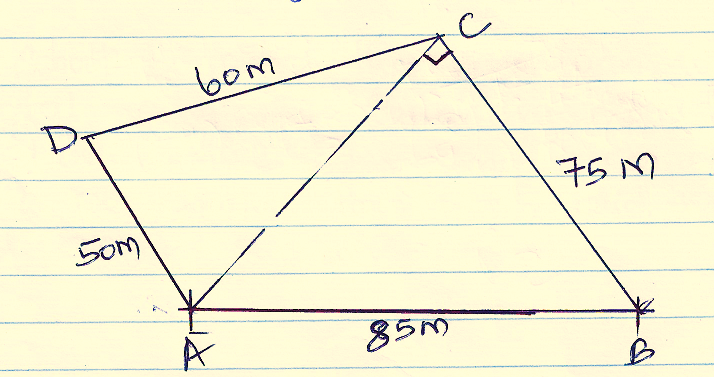 C
60m
D
75 M
50m
85m
A
B